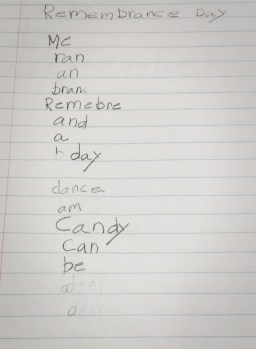 Remembrance Day
Me
ran
an
bran
Remebre
and
a
day
dance
am
Candy
Can
be